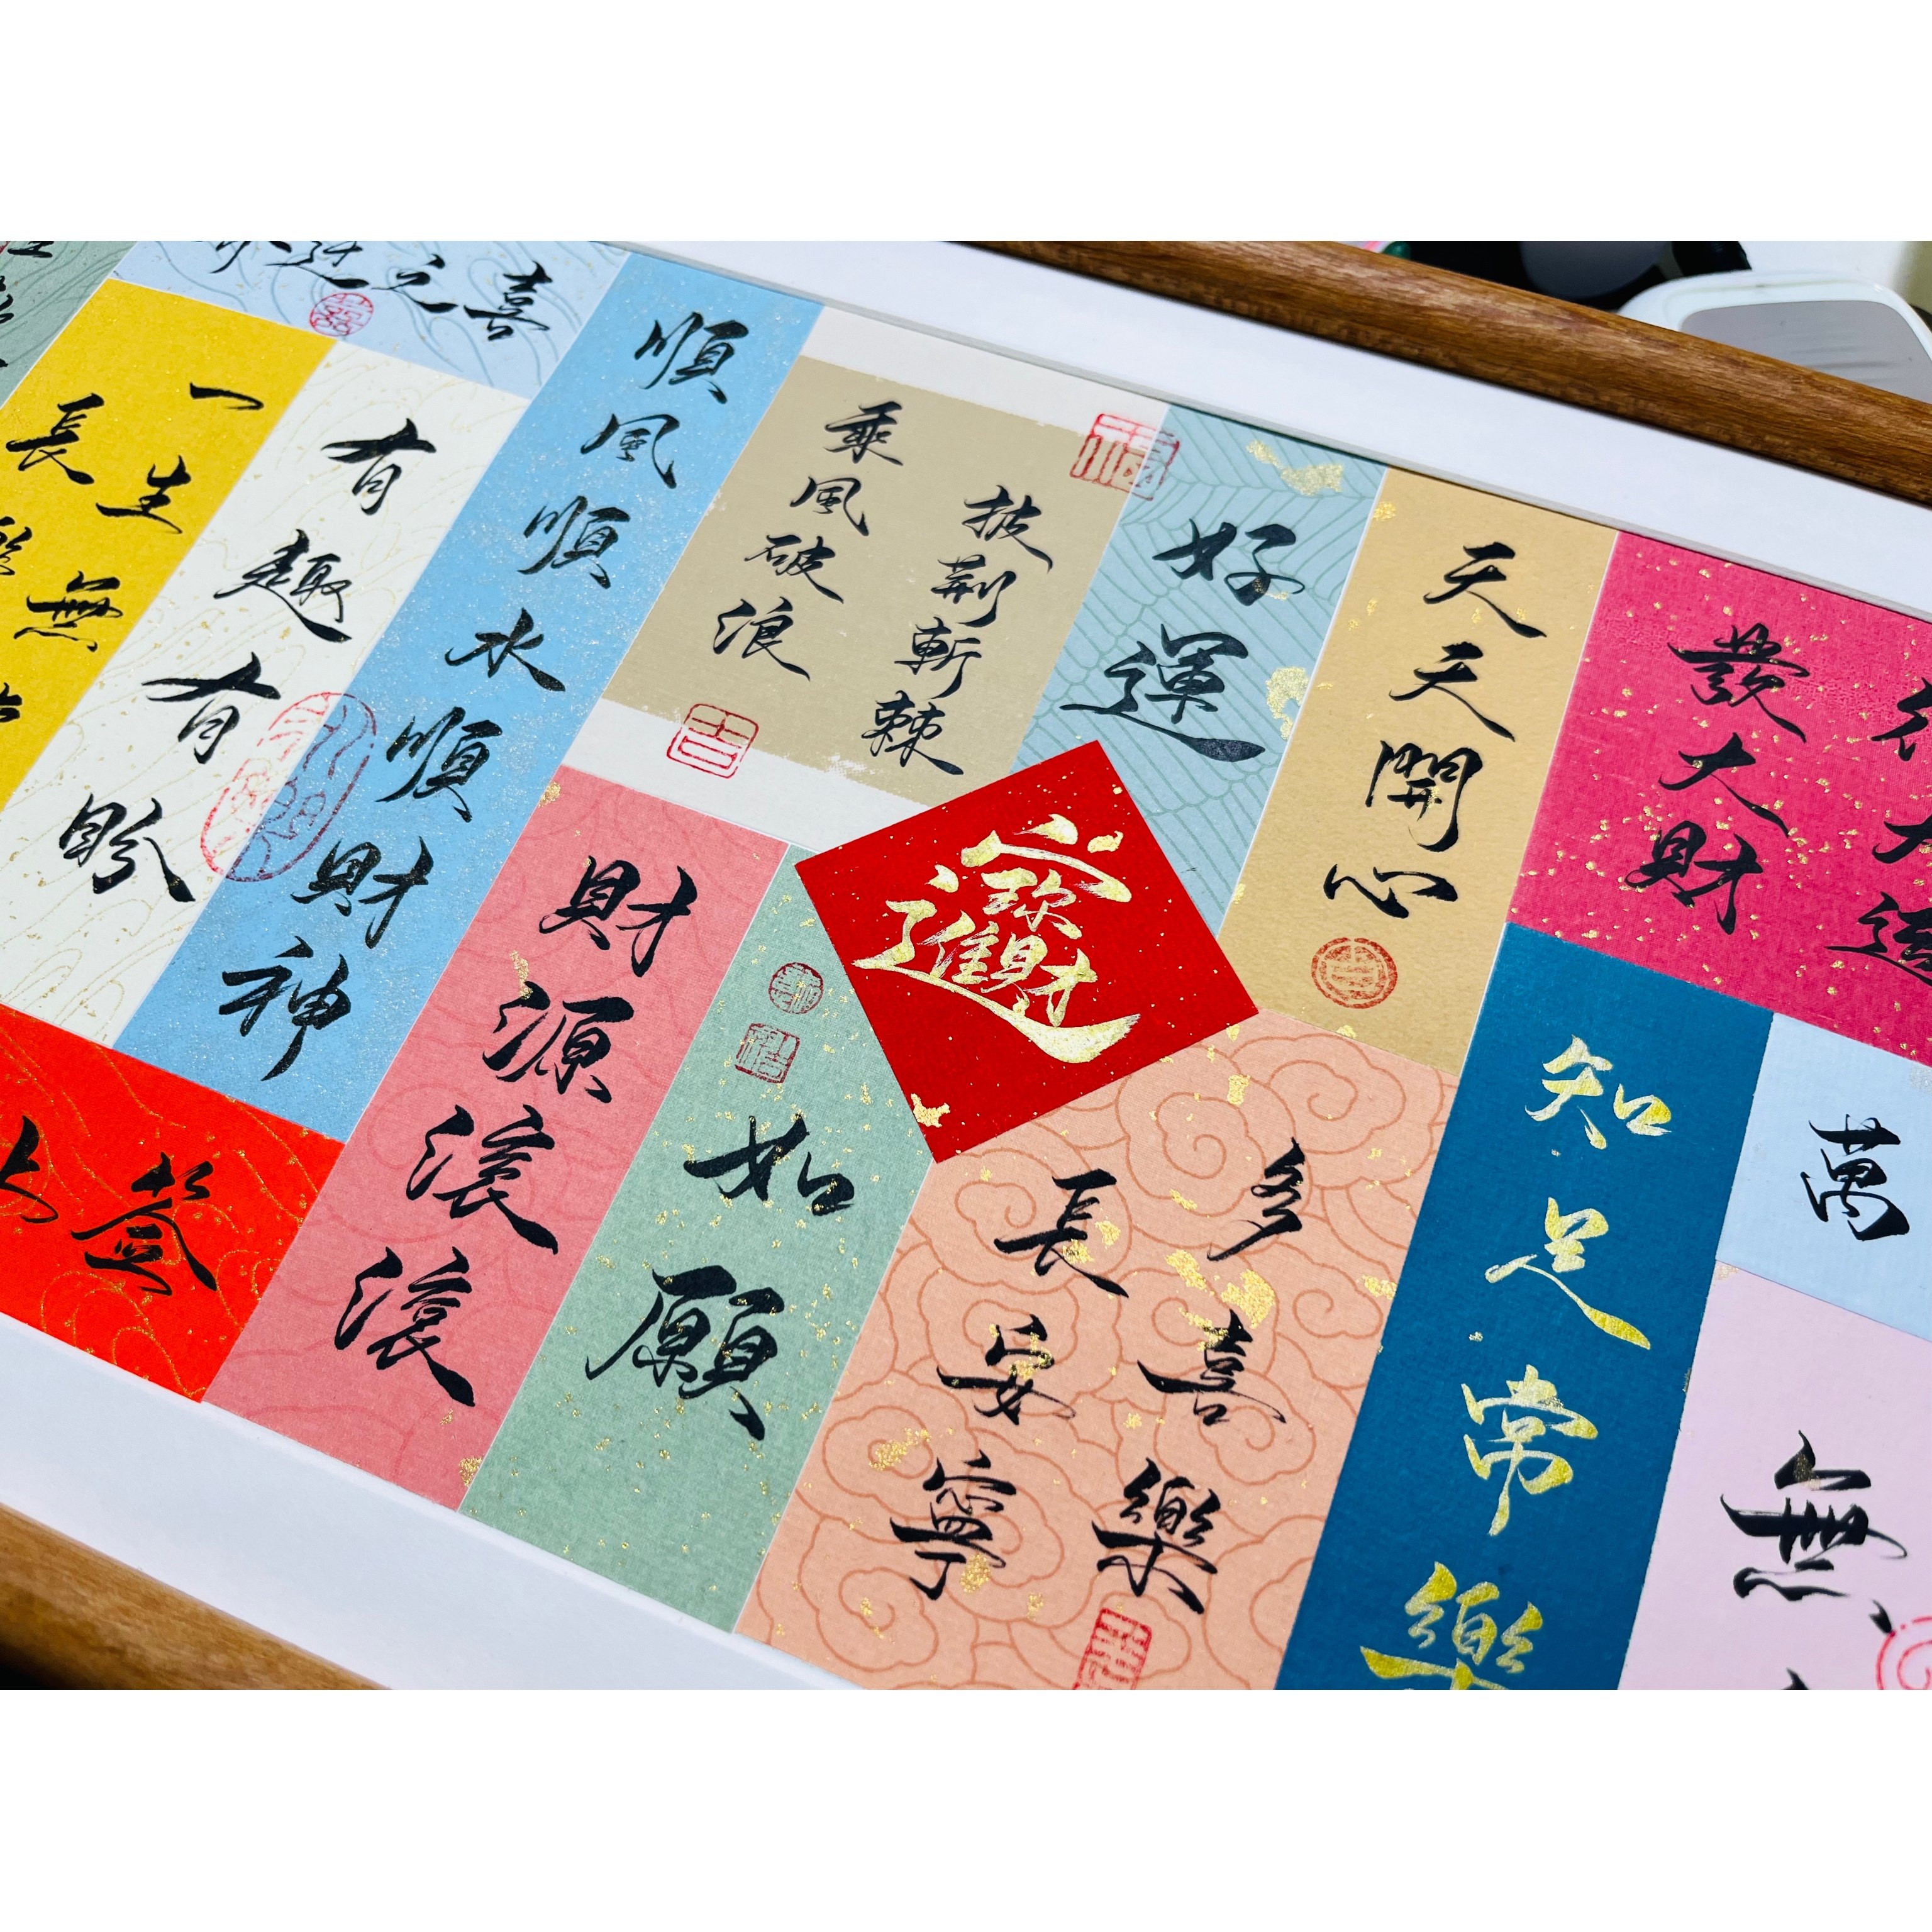 之喜
一生無
長
有趣有盼
順風順水順財神
乘風破浪
披荆斬棘
福
吉
好運
天天開心
發大財
大
上签
財源滾滾
如願
招財進寶
多喜樂
長安寧
知足常樂
萬
無